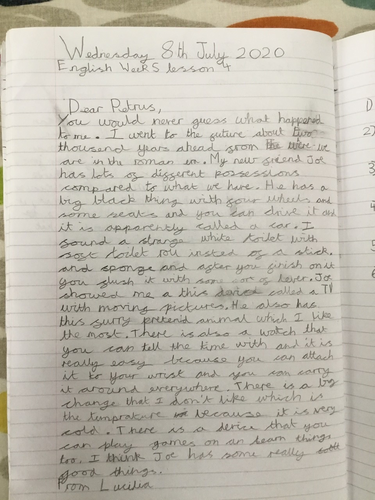 Wednesday 8th July 2020
English Week 5 lesson 4
Dear Petrus,
You would never guess what happened
to me. I went to the future about two
thousand years ahead from the were we
are in the roman . My new friend Joe
has lots of different possessions
compared to what we have. He has a
big black thing with four wheels and
some seats and you can drive it and
it is apparently called a car. I
found a strange white toilet with
soft toilet roll insted of a stick
and sponge and after you finish on it
you flush it with or lever. Joe
showed me a this device called a TV
with moving pictures. He also has
this furry pretend animal which I like
the most. There is also a watch that
you can tell the time with and it is
really easy because you can attach
it to your wrist and you can carry
it around everywhere. There is a big
change that I don't like which is
the temprature because it is very
cold. There is a device that you
can play games on an learn things
too. I think Joe has some really
good things.
From Lucilia
D
2)
3
4
5
6